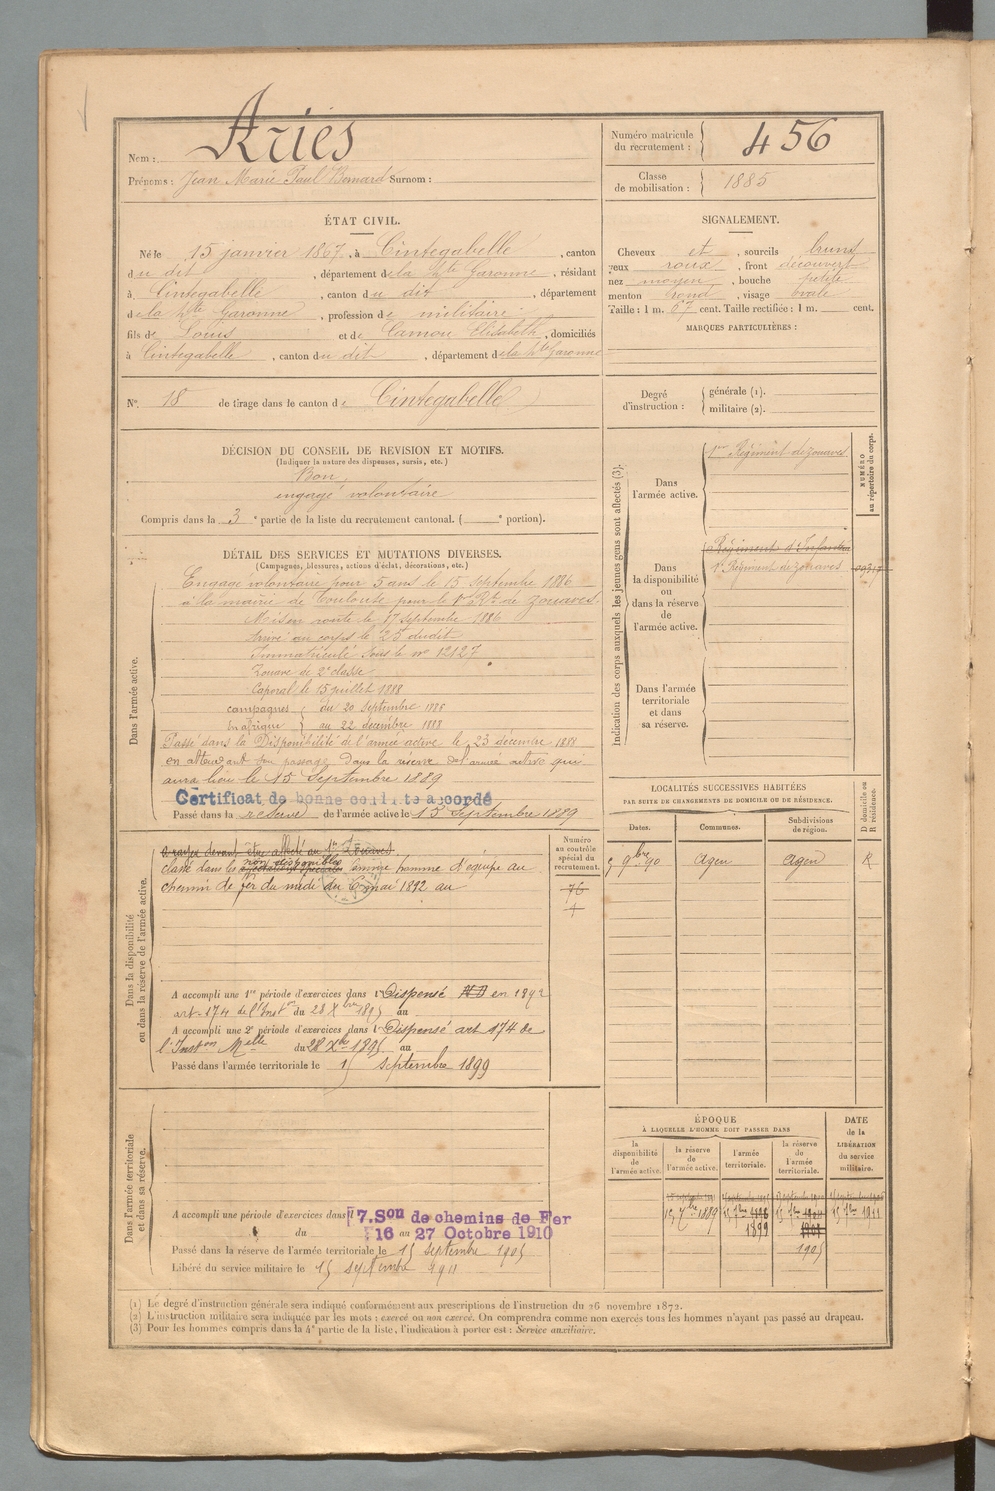 Nom : Ariès
Prénoms : Jean Marie Paul Bernard Surnom :
Numéro matricule du recrutement : 456
Classe de mobilisation : 1885
ÉTAT CIVIL.
Né le 15 janvier 1867, à Cintegabelle, canton
du dit, département de la hte Garonne, résidant
à Cintegabelle, canton du dit, département
de la hte Garonne, profession de militaire
fils de Louis et de Camou Elisabeth, domiciliés
à Cintegabelle, canton du dit, département de la hte Garonne
SIGNALEMENT.
Cheveux et, sourcils bruns
yeux roux, front découvert
nez moyen, bouche petite
menton rond, visage ovale
Taille : 1 m. 67 cent. Taille rectifiée : 1 m. cent.
MARQUES PARTICULIÈRES :
No. 18 de tirage dans le canton de Cintegabelle
Degré d'instruction : générale (1).
militaire (2).
DÉCISION DU CONSEIL DE REVISION ET MOTIFS.
(Indiquer la nature des dispenses, sursis, etc.)
Bon
engagé volontaire
Compris dans la 3e partie de la liste du recrutement cantonal. ( e portion).
DÉTAIL DES SERVICES ET MUTATIONS DIVERSES.
(Campagnes, blessures, actions d'éclat, décorations, etc.)
Dans l'armée active.
Engagé volontaire pour 5 ans le 15 septembre 1886
à la mairie de Toulouse pour le 1er Rt de zouaves.
Mis en route le 17 septembre 1886
Arrivé au corps le 25 dudit
Immatriculé sous le no 12127
Zouave de 2e classe
Caporal le 15 juillet 1888
campagnes du 20 Septembre 1886
en afrique au 22 decembre 1888
Passé dans la Disponibilité de l'armée active le 23 décembre 1888
en attendant son passage dans la reserve de l'armée active qui
aura lieu le 15 Septembre 1889
Certificat de bonne conduite accordé
Passé dans la reserve de l'armée active le 15 Septembre 1889
Indication des corps auxquels les jeunes gens sont affectés (3).
NUMÉRO au répertoire du corps.
Dans l'armée active.
1er Régiment de zouaves
Dans la disponibilité ou dans la réserve de l'armée active.
Régiment d'Infanterie
1er Régiment de zouaves
Dans l'armée territoriale et dans sa réserve.
Dans la disponibilité ou dans la réserve de l'armée active.
Numéro au contrôle spécial du recrutement.
76
classé dans les non disponibles comme homme d'équipe au
chemin de fer du midi du 6 mai 1892 au
A accompli une 1re période d'exercices dans l Dispensé en 1892
art. 174 de l'Inston du 28 Xbre 1895 au
A accompli une 2e période d'exercices dans l Dispensé art 174 de
l'Inston Melle du 28 Xbre 1895 au
Passé dans l'armée territoriale le 15 septembre 1899
LOCALITÉS SUCCESSIVES HABITÉES
PAR SUITE DE CHANGEMENTS DE DOMICILE OU DE RÉSIDENCE.
Dates. Communes. Subdivisions de région. D domicile ou R résidence.
5 9bre 90 Agen Agen R
Dans l'armée territoriale et dans sa réserve.
A accompli une période d'exercices dans l 7. Son de chemins de Fer
du 16 au 27 Octobre 1910
Passé dans la réserve de l'armée territoriale le 15 septembre 1905
Libéré du service militaire le 15 septembre 1911
ÉPOQUE
À LAQUELLE L'HOMME DOIT PASSER DANS
la disponibilité de l'armée active.
la réserve de l'armée active.
l'armée territoriale.
la réserve de l'armée territoriale.
DATE de la LIBÉRATION du service militaire.
15 7bre 1889
15 7bre 1899
15 7bre 1905
15 7bre 1911
(1) Le degré d'instruction générale sera indiqué conformément aux prescriptions de l'instruction du 26 novembre 1872.
(2) L'instruction militaire sera indiquée par les mots : exercé ou non exercé. On comprendra comme non exercés tous les hommes n'ayant pas passé au drapeau.
(3) Pour les hommes compris dans la 4e partie de la liste, l'indication à porter est : Service auxiliaire.